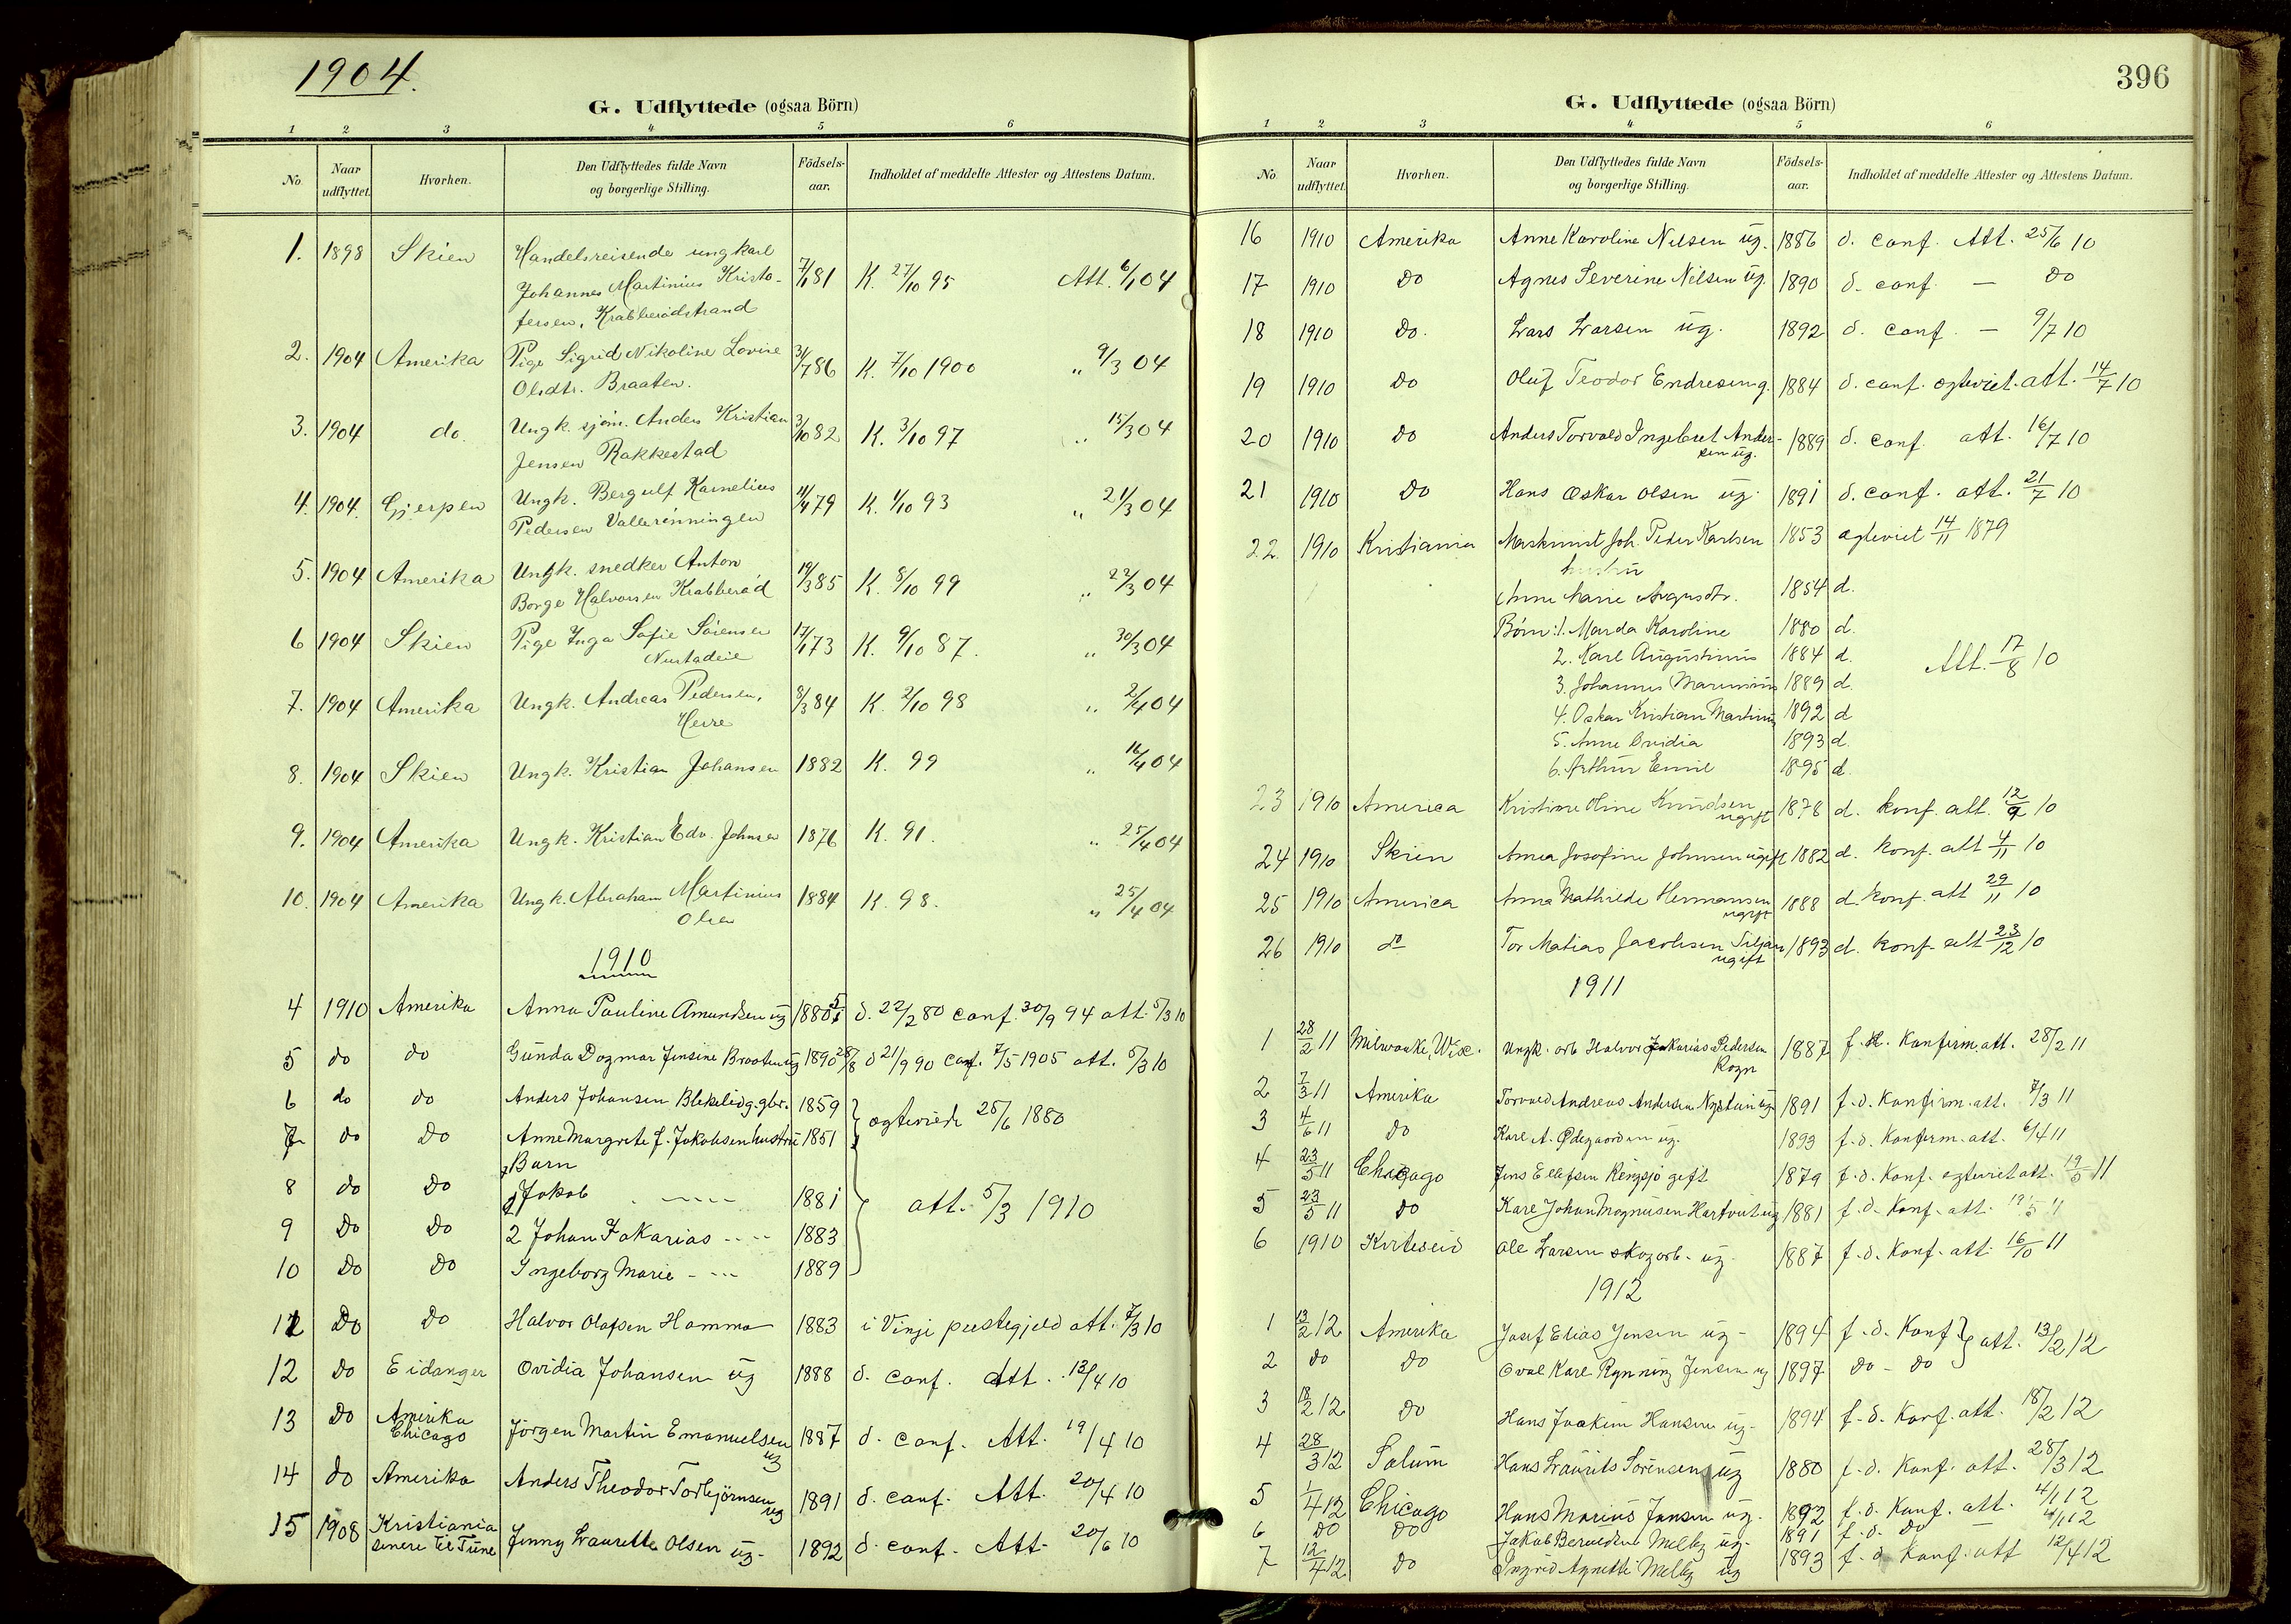 1904.
G. Udflyttede (ogsaa Börn)
1 2 3 4 5 6
No. Naar udflyttet. Hvorhen. Den Udflyttedes fulde Navn og borgerlige Stilling. Födsels-aar. Indholdet af meddelte Attester og Attestens Datum.
1. 1898 Skien Handelsreisende ungkarl
Johannes Martinius Kristo- 7/1 81 K. 27/10 95 Att. 6/1 04
fersen, Krabberødstrand
2. 1904 Amerika Pige Sigrid Nikoline Lovise 31/7 86 K. 7/10 1900 „ 9/3 04
Olsdtr. Braaten.
3. 1904 do. Ungk. sjøm. Anders Kristian 3/10 82 K. 3/10 97 „ 15/3 04
Jensen Rakkestad
4. 1904. Gjerpen Ungk. Bergulf Kornelius 11/4 79 K. 1/10 93 „ 21/3 04
Pedersen Vallerönningen
5. 1904 Amerika Ungk. snedker Anton 19/3 85 K. 8/10 99 „ 22/3 04
Borge Halvorsen Krabberød
6 1904 Skien Pige Inga Sofie Sörensen 17/1 73 K. 9/10 87. „ 30/3 04
Nustadeie
7. 1904 Amerika Ungk. Andreas Pedersen, 8/3 84 K. 2/10 98 „ 2/4 04
Herre
8. 1904 Skien Ungk. Kristian Johansen 1882 K. 99 „ 16/4 04
9. 1904 Amerika Ungk. Kristian Edv. Johnsen 1876 K. 91. „ 25/4 04
10. 1904 Amerika Ungk. Abraham Martinius 1884 K. 98. „ 25/4 04
Olsen
1910
4 1910 Amerika Anna Pauline Amundsen ug 1880 d. 22/2 80 conf. 30/9 94 att. 5/3 10
5 do do Gunda Dagmar Jensine Braaten ug 1890 28/8 d 21/9 90 conf. 7/5 1905 att. 5/3 10
6 do do Anders Johansen Blekelid g. gbr. 1859 } ogteviede 25/6 1880
7 do do Anne Margrete f. Jakobsen hustru 1851
Barn
8 do do 1 Jakob 1881 att. 5/3 1910
9 do do 2 Johan Zakarias 1883
10 do do Ingeborg Marie 1889
11 do do Halvor Olafsen Hamma 1883 i Vinje prestegjeld att. 7/3 10
12 do Eidanger Ovidia Johansen ug 1888 d. conf. Att. 13/4 10
13 do Amerika Chicago Jörgen Martin Emanuelsen ug 1887 d. conf. Att. 19/4 10
14 do Amerika Anders Theodor Torbjörnsen ug 1891 d. conf. Att. 20/4 10
15 1908 Kristiania senere til Tune Jenny Laurette Olsen ug. 1892 d. conf. Att. 20/6 10
396
G. Udflyttede (ogsaa Börn)
1 2 3 4 5 6
No. Naar udflyttet. Hvorhen. Den Udflyttedes fulde Navn og borgerlige Stilling. Födsels-aar. Indholdet af meddelte Attester og Attestens Datum.
16 1910 Amerika Anne Karoline Nilsen ug. 1886 d. conf. Att. 25/6 10
17 1910 do Agnes Severine Nilsen ug. 1890 d. conf. — do
18 1910 do. Lars Larsen ug. 1892 d. conf. — 9/7 10
19 1910 do Oluf Teodor Endresen g. 1884 d. conf. ogteviet. att. 14/7 10
20 1910 do Anders Torvald Ingebret Ander- 1889 d. conf. att. 16/7 10
sen ug.
21 1910 do Hans Oskar Olsen ug. 1891 d. conf. att. 21/7 10
22. 1910 Kristiania Maskinist Joh. Peder Karlsen 1853 ogteviet 14/11 1879
hustru
Anne Marie Augusdtr. 1854 d.
Börn: 1. Marda Karoline 1880 d.
2. Karl Augustinus 1884 d. Att. 17/8 10
3. Johannes Marinius 1889 d.
4. Oskar Kristian Martinius 1892 d
5. Anne Ovidia 1893 d.
6. Arthur Emil 1895 d.
23 1910 America Kristine Oline Knudsen 1878 d. konf. att. 12/9 10
ugift
24 1910 Skien Anna Josefine Johnsen ugift 1882 d. konf. att 4/11 10
25 1910 America Anna Mathilde Hermansen 1888 d. konf. att 29/11 10
ugift
26 1910 do Tor Matias Jacobsen Siljan 1893 d. konf. att 23/12 10
ugift
1911
1 28/2 11 Milwauke, Wisc. Ungk. arb Halvor Zakarias Pedersen 1887 f. d. Konfirm. att. 28/2 11
Rogn
2 7/3 11 Amerika Torvald Andreas Andersen Nystuen ug 1891 f. d. Konfirm. att. 7/3 11
3 4/6 11 do Karl A. Ødegaarden ug. 1893 f. d. Konfirm. att. 6/4 11
4 23/5 11 Chicago Jens Ellefsen Ringsjø gift 1879 f. d. Konf. ogteviet att. 19/5 11
5 23/5 11 do Karl Johan Magnusen Hartvit ug 1881 f. d. Konf. att. 19/5 11
6 1910 Kviteseid Ole Larsen skogarb. ug. 1887 f. d. Konf. att. 16/10 11
1912
1 13/2 12 Amerika Josef Elias Jensen ug. 1894 f. d. Konf } att. 13/2 12
2 do do Oval Karl Rynning Jensen ug 1897 do - do
3 18/2 12 do Hans Joakim Hansen ug. 1894 f. d. Konf. att. 18/2 12
4 28/3 12 Solum Hans Laurits Sörensen ug 1880 f. d. Konf. att. 28/3 12
5 1/4 12 Chicago Hans Marius Jansen ug. 1892 f. d. Konf. att. 4/1 12
6 do do Jakob Berntsen Melby ug. 1891 f. d. do — 4/1 12
7 12/4 12 do Ingrid Agnethe Melby ug 1893 f. d. Konf. att 12/4 12